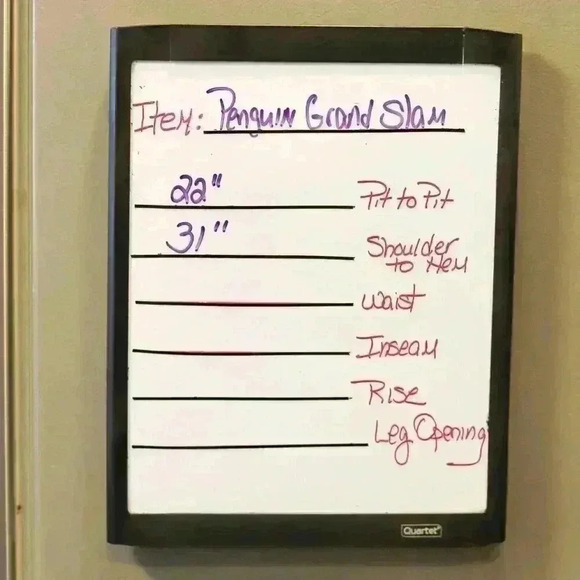 Item: Penguin Grand Slam
22" Pit to Pit
31" Shoulder
to Hem
Waist
Inseam
Rise
Leg Opening
Quartet